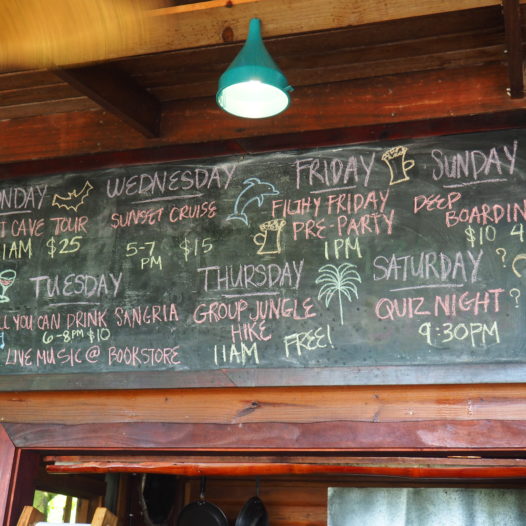 ONDAY
T CAVE TOUR
1AM $25
WEDNESDAY
SUNSET CRUISE
5-7 PM $15
FRIDAY
FILTHY FRIDAY
PRE-PARTY
1PM
SUNDAY
DEEP
BOARDIN
$10 4
TUESDAY
LL YOU CAN DRINK SANGRIA
6-8PM $10
LIVE MUSIC @ BOOKSTORE
THURSDAY
GROUP JUNGLE
HIKE
11AM FREE!
SATURDAY ?
QUIZ NIGHT ?
9:30PM